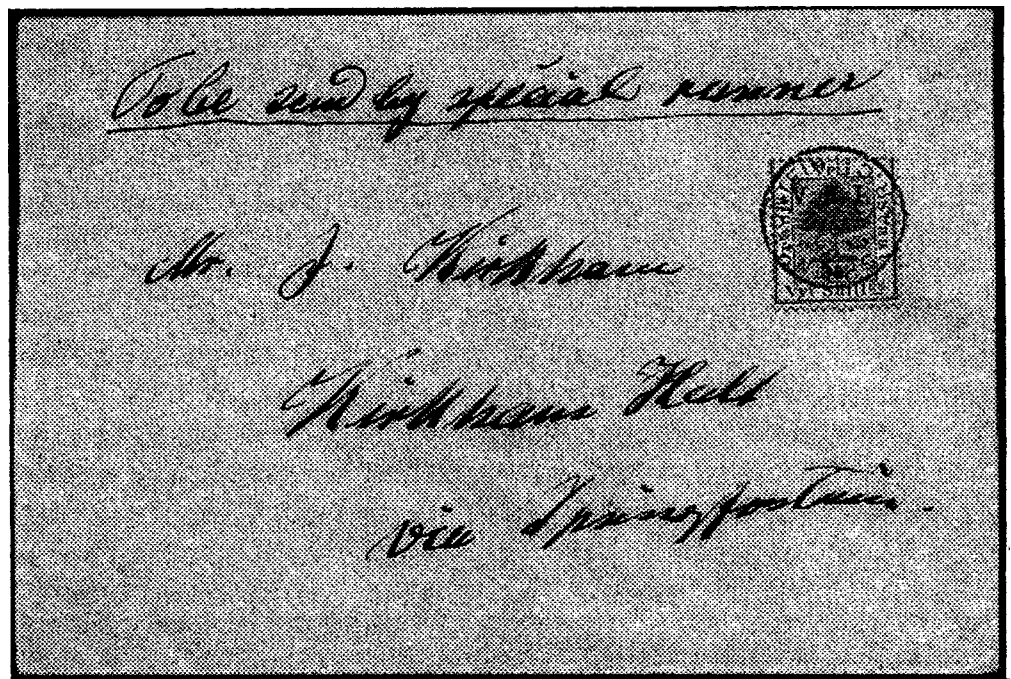 To be send by special runner
Mr. J. Kirkham
Kirkham Halt
via Springfontein.